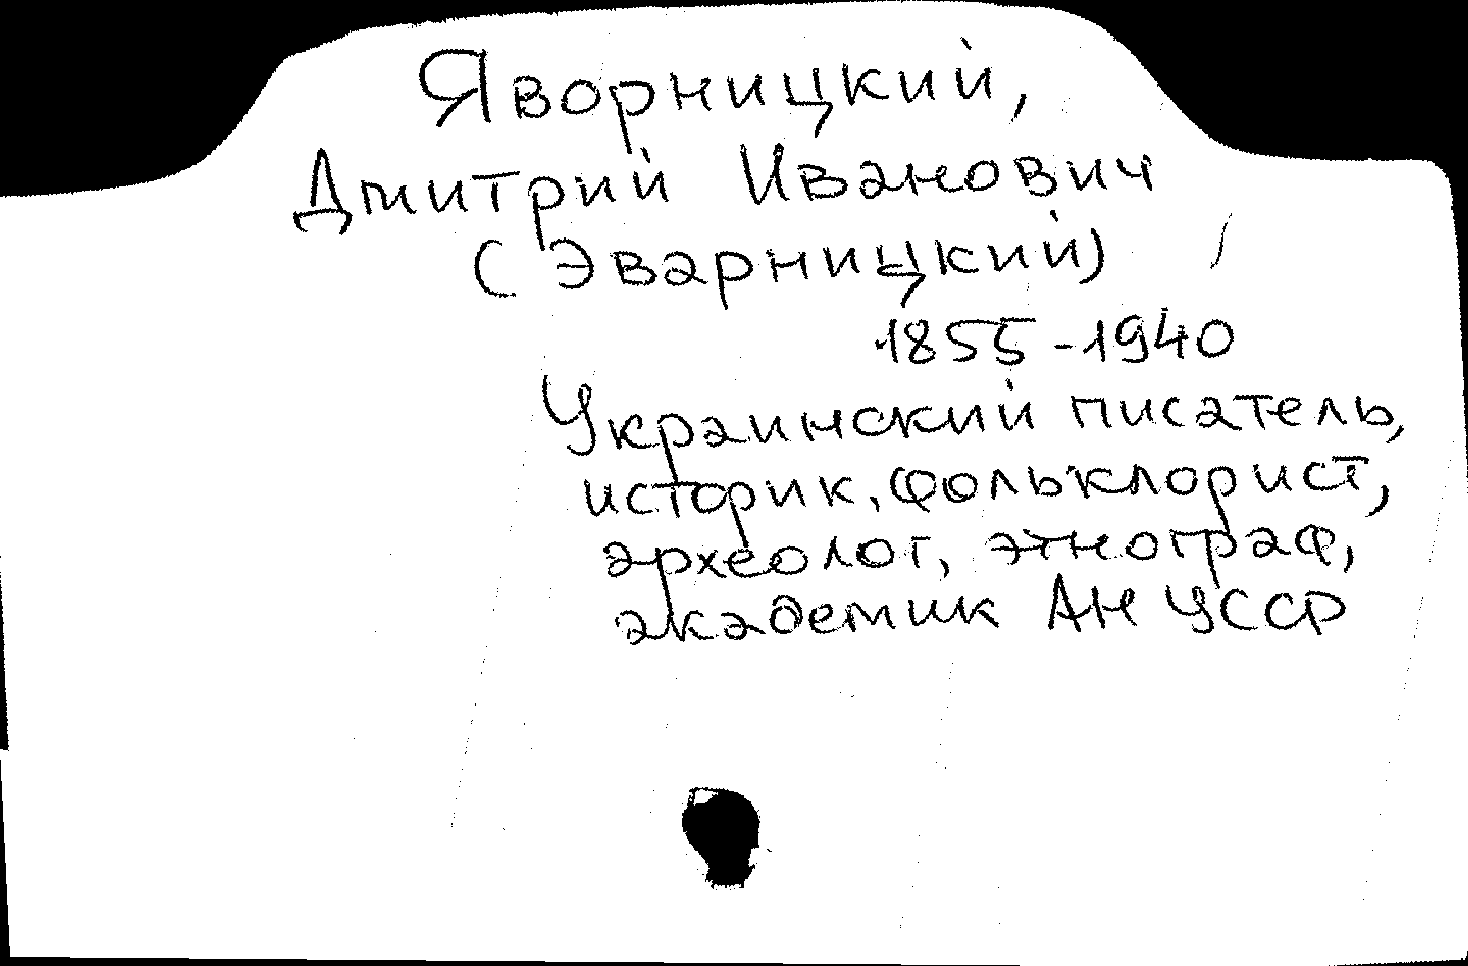 Яворницкий,
Дмитрий Иванович
(Эварницкий)
1855-1940
Украинский писатель,
историк, фольклорист,
археолог, этнограф,
академик АН УССР